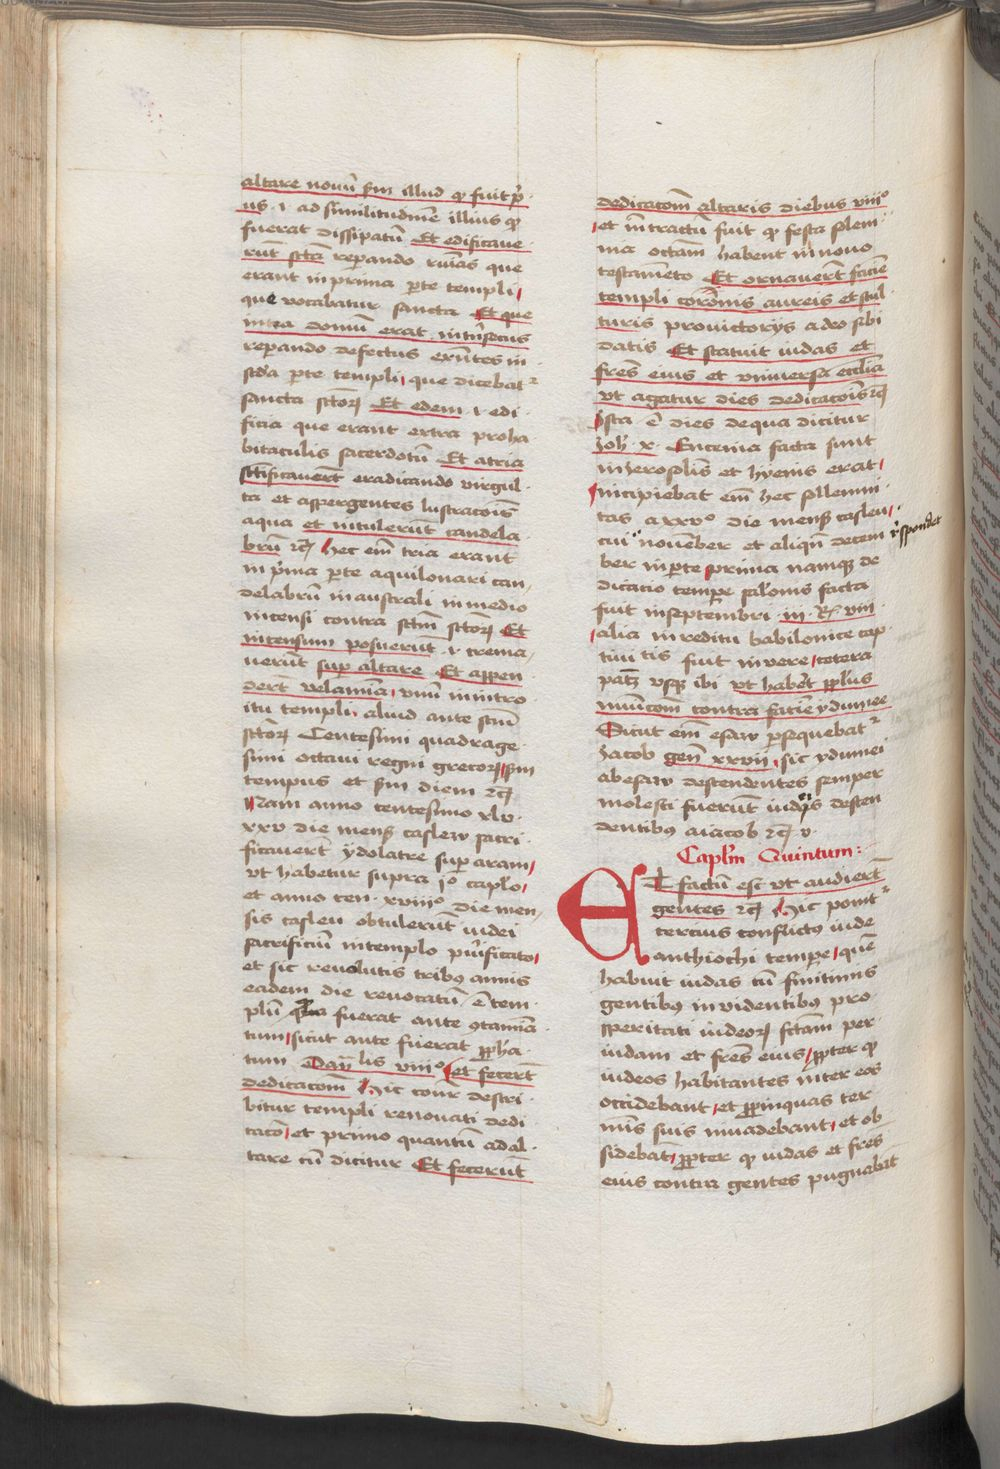 altare novū scđm illud qđ fuit pri
us .i. ad similitudinē illius qđ
fuerat dissipatū Et edificave
rūt scta reparando ruinas que
erant in prima parte templi
que vocabatur sancta Et que
intra domū erāt intrīsecus
reparando defectus exn̄tes in
scđa parte templi que dicebatᷣ
sancta sctoꝝ Et edem .i. edi
ficia que erant extra pro ha
bitaculis sacerdotū Et atria
sctificauerūt eradicando virgul
ta et aspergentes lustracōis
aqua et intulerūt candela
brū ꝛc̄ Hec em̄ tria erant
in prīma parte aquilonari can
delabrū in australi in medio
incensi contra sctm̄ sctoꝝ Et
incensum posuerūt .i. crema
uerūt super altare Et appen
derūt velamīa vnū in intro
itu templi aliud ante sctm̄
sctoꝝ Centesimi quadrage
simi octaui regni grecoꝝ scđm
tempus et scđm diem ꝛc̄
Nam anno centesimo xlv
xxv die mensꝭ casleu sacri
ficauerūt ydolatre super aram
vt habetur supra jᵒ caplo
et anno cen. xviiiᵒ die men
sis casleu obtulerūt iudei
sacrificiū in templo purificato
et sic reuolutis tribꝰ annis
eadem die reuocatū ē tem
plū fuerat ante ꝯtamīa
tum sicut ante fuerat ꝓpha
tum Danielis viiiᵒ et fecerūt
dedicacōm Hic cōnr descri
bitur templi renouati dedi
cacō et primo quantū ad al
tare cū dicitur Et fecerūt
dedicacōm altaris diebus viiiᵒ
et inītractū fuit qđ festa solem
nia octām habent in nouo
testamēto Et ornauerūt faciē
templi corōnis aureis et scul
turis pro victorijs a deo sibi
datis Et statuit iudas et
frēs eius et vniuersa ecclīa
vt agatur dies dedicacōis ꝛc̄
Ista ē dies de qua dicitur
Joh. x. Encenia facta sunt
in ierosolīs et hyems erat
incipiebat em̄ hec sollemni
tas a xxvᵒ die mensꝭ casleu
cui nouēber et aliqn̄ decem rn̄spondet
ber in parte prima namqꝫ de
dicacio tempore salōnis facta
fuit in septembri .iii. Rͤ. viii
alia in reditu babilonice cap
tiui tis fuit in vere cetera
patꝫ vsqꝫ ibi vt haberet ppl̄us
municōm contra faciē ydumee
Sicut em̄ esau ꝑsequebatᷣ
Jacob gen̄ xxvii sic ydumei
ab esau descendentes semper
molesti fuerūt iudeis descen
dentibꝰ a iacob ꝛc̄ v
Caplm̄ Quintum:
Et factū est vt audierūt
gentes ꝛc̄ Hic ponitᷣ
tercius conflictꝰ iude
anthiochi tempore quē
habuit iudas cū finitimis
gentibꝰ invidentibꝰ pro
speritati iudeoꝝ sctām per
iudam et frēs eius ꝓpter qđ
iudeos habitantes inter eos
occidebant et ꝓpinquas ter
mīs suis inuadebant et ob
sidebāt ꝓpter qđ iudas et frēs
eius contra gentes pugnabāt